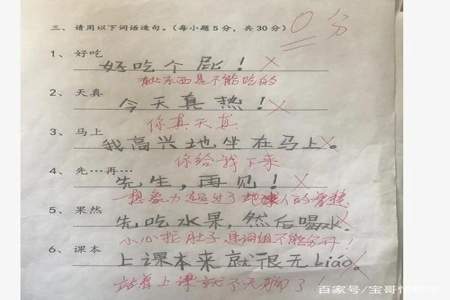 三、请用以下词语造句。(每小题5分,共30分)
0分
1、好吃
好吃个屁!
有些东西是不能吃的
2、天真
今天真热!
你真天真
3、马上
我高兴地坐在马上。
你给我下来
4、先…再…
先生,再见!
想象力超过了地球人的智慧
5、果然
先吃水果,然后喝水。
小心拉肚子,连词组不能分开!
6、课本
上课本来就很无Liáo。
站着上课就不无聊了
百家号/宝哥